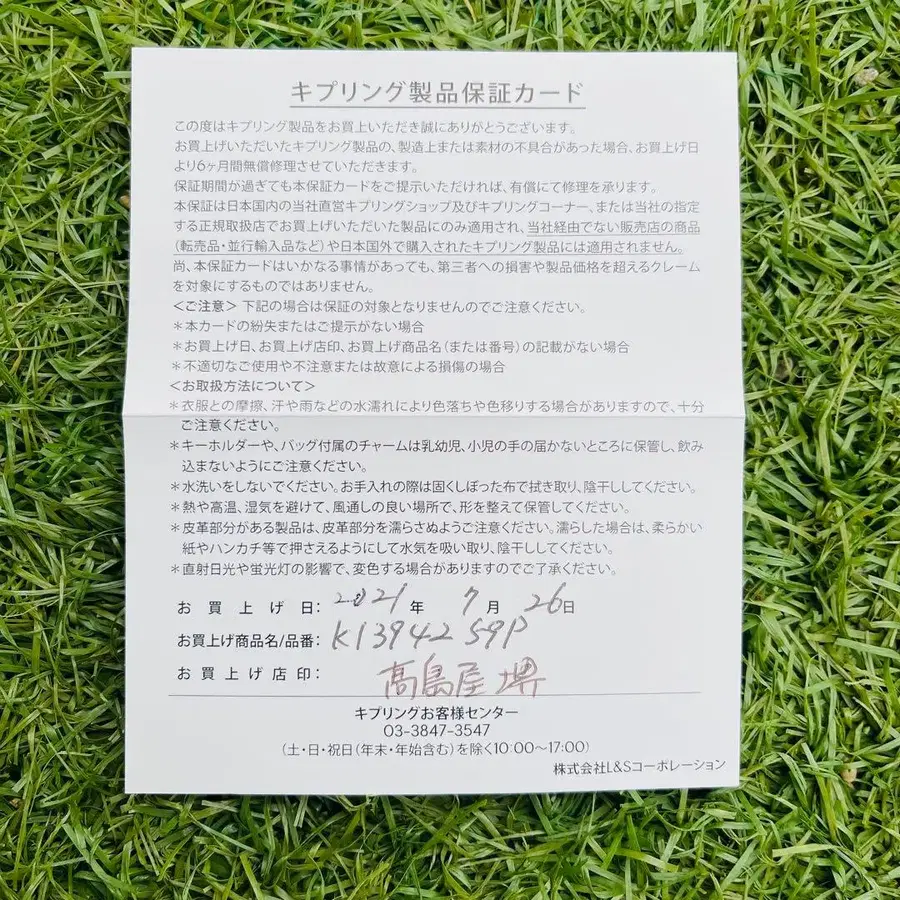 キプリング製品保証カード
この度はキプリング製品をお買上いただき誠にありがとうございます。
お買上げいただいたキプリング製品の、製造上または素材の不具合があった場合、お買上げ日
より6ヶ月間無償修理させていただきます。
保証期間が過ぎても本保証カードをご提示いただければ、有償にて修理を承ります。
本保証は日本国内の当社直営キプリングショップ及びキプリングコーナー、または当社の指定
する正規取扱店でお買上げいただいた製品にのみ適用され、当社経由でない販売店の商品
(転売品・並行輸入品など)や日本国外で購入されたキプリング製品には適用されません。
尚、本保証カードはいかなる事情があっても、第三者への損害や製品価格を超えるクレーム
を対象にするものではありません。
<ご注意> 下記の場合は保証の対象となりませんのでご注意ください。
*本カードの紛失またはご提示がない場合
*お買上げ日、お買上げ店印、お買上げ商品名(または番号)の記載がない場合
*不適切なご使用や不注意または故意による損傷の場合
<お取扱方法について>
*衣服との摩擦、汗や雨などの水濡れにより色落ちや色移りする場合がありますので、十分
ご注意ください。
*キーホルダーや、バッグ付属のチャームは乳幼児、小児の手の届かないところに保管し、飲み
込まないようにご注意ください。
*水洗いをしないでください。お手入れの際は固くしぼった布で拭き取り、陰干ししてください。
*熱や高温、湿気を避けて、風通しの良い場所で、形を整えて保管してください。
*皮革部分がある製品は、皮革部分を濡らさぬようご注意ください。濡らした場合は、柔らかい
紙やハンカチ等で押さえるようにして水気を吸い取り、陰干ししてください。
*直射日光や蛍光灯の影響で、変色する場合がありますのでご了承ください。
お買上げ日: 2021年 7月 26日
お買上げ商品名/品番: K13942 59P
お買上げ店印: 髙島屋 堺
キプリングお客様センター
03-3847-3547
(土・日・祝日(年末・年始含む)を除く10:00〜17:00)
株式会社L&Sコーポレーション